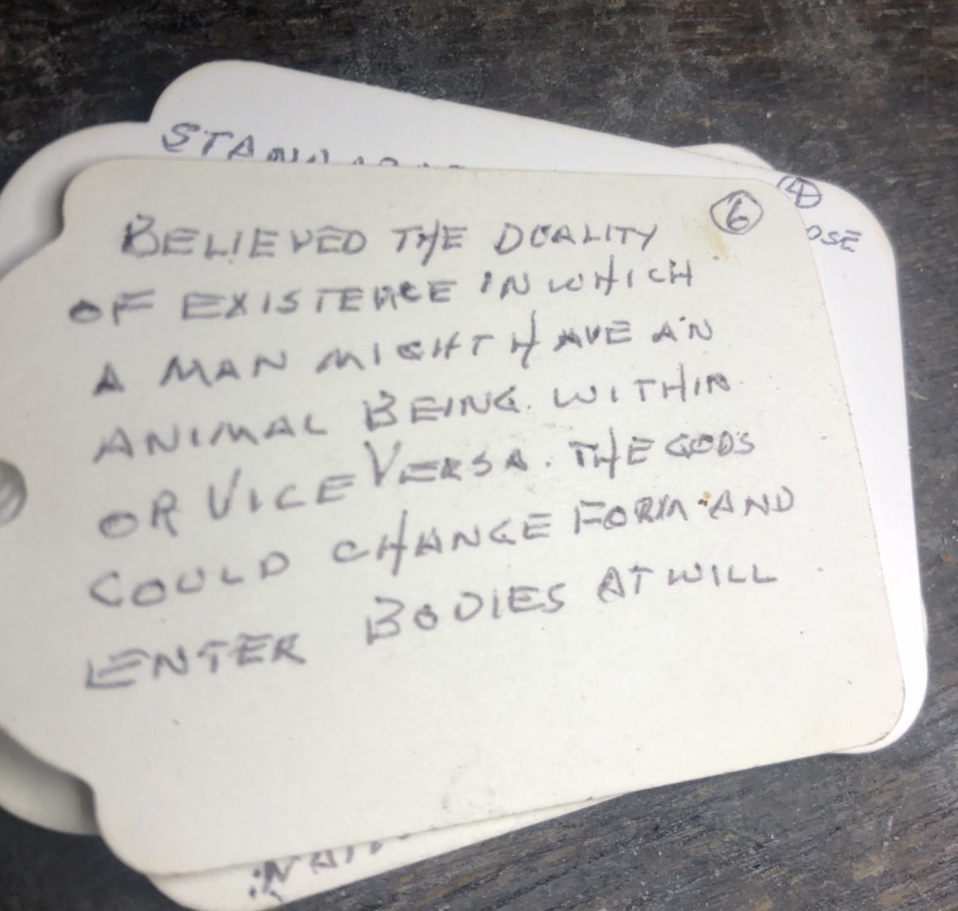 ④
OSE
⑥
BELIEVED THE DUALITY
OF EXISTENCE IN WHICH
A MAN MIGHT HAVE AN
ANIMAL BEING WITHIN
OR VICE VERSA. THE GODS
COULD CHANGE FORM AND
ENTER BODIES AT WILL